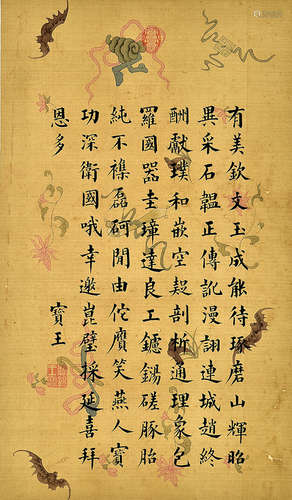 有美欽文玉成能待琢磨山輝昭
異采石韞正傳訛漫詡連城趙終
酬獻璞和嵌空剖析通理象包
羅國器圭璋達良工鑢鐋磋豚胎
純不襍磊砢閒由佗贗笑燕人寶
功深衛國哦幸邀崑璧採延喜拜
恩多 寶王